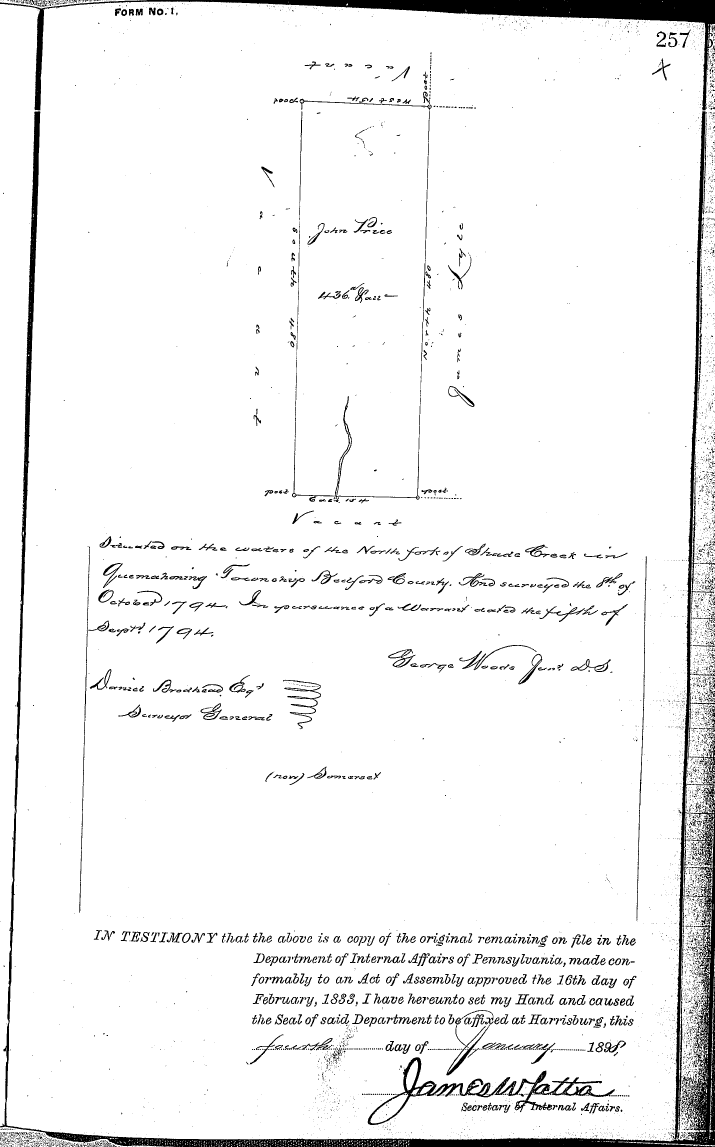 FORM No. 1.
257
X
Vacant
post
West 154
post
Vacant
South 480
John Price
436 a
North 480
James Lyle
post
East 154
post
Vacant
Situated on the waters of the North fork of Shade Creek in
Quemahoning Township Bedford County. And surveyed the 8th of
October 1794. In pursuance of a Warrant dated the fifth of
Sept. 1794.
George Woods Junr D.S.
Daniel Brodhead Esqr
Surveyor General
(now) Somerset
IN TESTIMONY that the above is a copy of the original remaining on file in the
Department of Internal Affairs of Pennsylvania, made con-
formably to an Act of Assembly approved the 16th day of
February, 1833, I have hereunto set my Hand and caused
the Seal of said Department to be affixed at Harrisburg, this
fourth day of January 1898,
James W. Latta
Secretary of Internal Affairs.